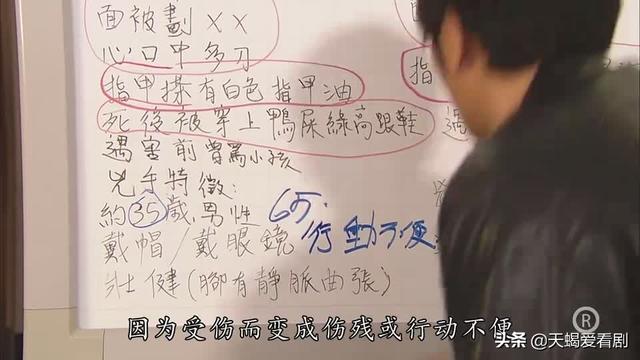 面被劃××
心口中多刀
指甲搽有白色指甲油
死後被穿上鴨屎綠高跟鞋
遇害前曾罵小孩
兇手特徵:
約35歲,男性 65:
戴帽/戴眼鏡 行動不便
壯健(腳有靜脈曲張)
指
遇
因为受伤而变成伤残或行动不便
R
头条 @天蝎爱看剧